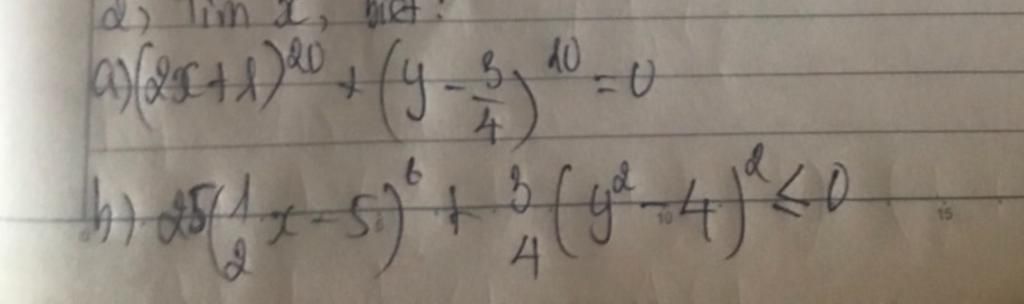 2) Tìm x, biết:
a) (2x+1)^20 + (y - 3/4)^10 = 0
b) 25(1/2 x - 5)^6 + 3/4 (y^2 - 4)^2 ≤ 0
10 15